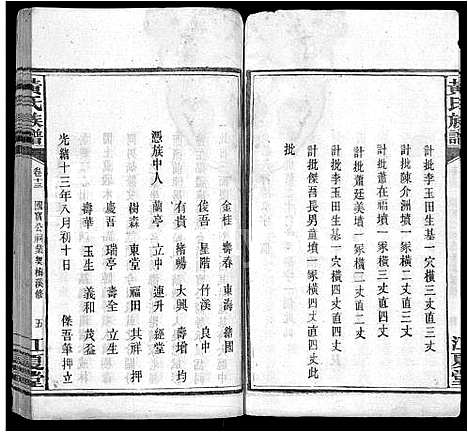 黃氏族譜
江夏堂
計批李玉田生基一穴橫三丈直三丈
計批陳介洲墳一冢橫二丈直二丈
計批蕭在福墳一冢橫二丈直二丈
計批蕭廷美墳一冢橫二丈直二丈
計批李玉田生基一穴橫二丈直三丈
計批傑吾長男童墳一冢橫四丈直四丈此
批
金桂 壽春 東海 緒國
俊吾 星階 竹溪 良中
有貴 緒暢 大興 壽增 均
憑族中人 蘭亭 立中 連升 經堂
樹森 東堂 福田 其祥 押
慶吾 瑞亭 壽全 立生
壽華 玉生 義和 茂盛
光緒十三年八月初十日 傑吾筆押立
黃氏族譜
卷十三
五
江夏堂